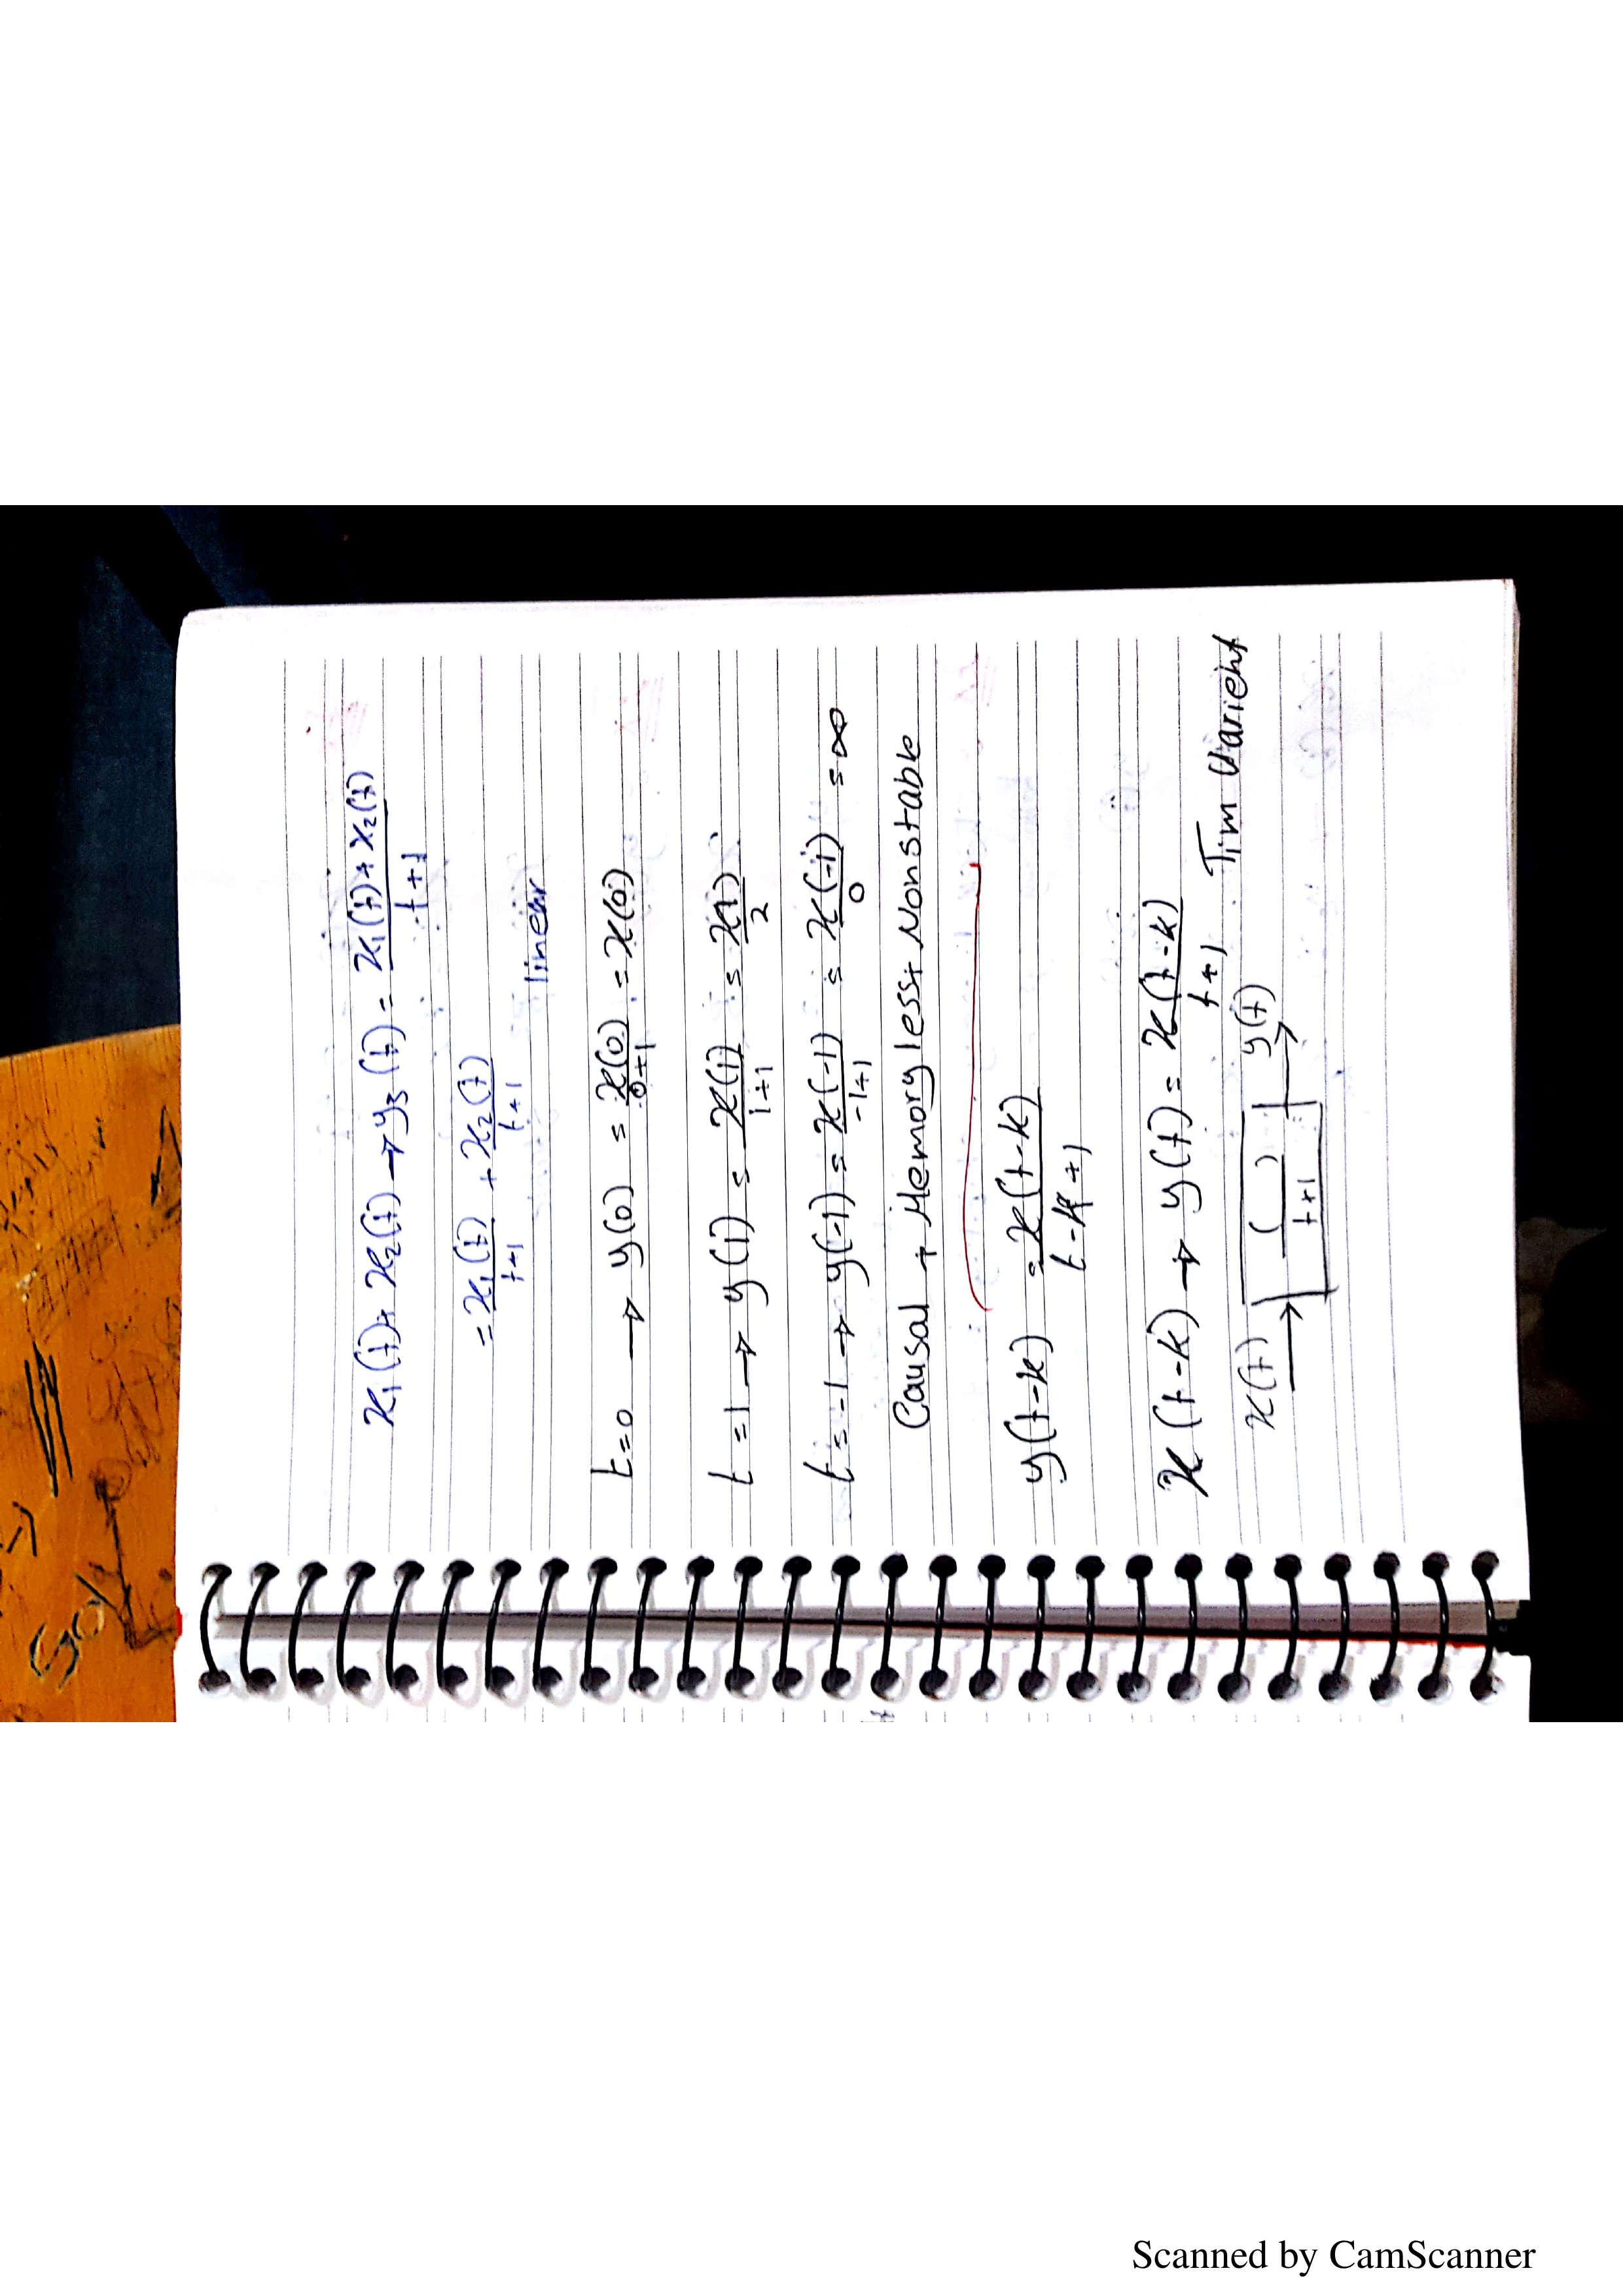 x₁(t) + x₂(t) → y₃(t) = x₁(t) + x₂(t) / t+1
= x₁(t) / t+1 + x₂(t) / t+1
linear
t=0 → y(0) = x(0) / 0+1 = x(0)
t=1 → y(1) = x(1) / 1+1 = x(1) / 2
t=-1 → y(-1) = x(-1) / -1+1 = x(-1) / 0 = ∞
Causal + Memoryless + Nonstable
y(t-k) = x(t-k) / t-k+1
x(t-k) → y(t) = x(t-k) / t+1
Tim Varient
x(t) → ( ) / t+1 → y(t)
Scanned by CamScanner